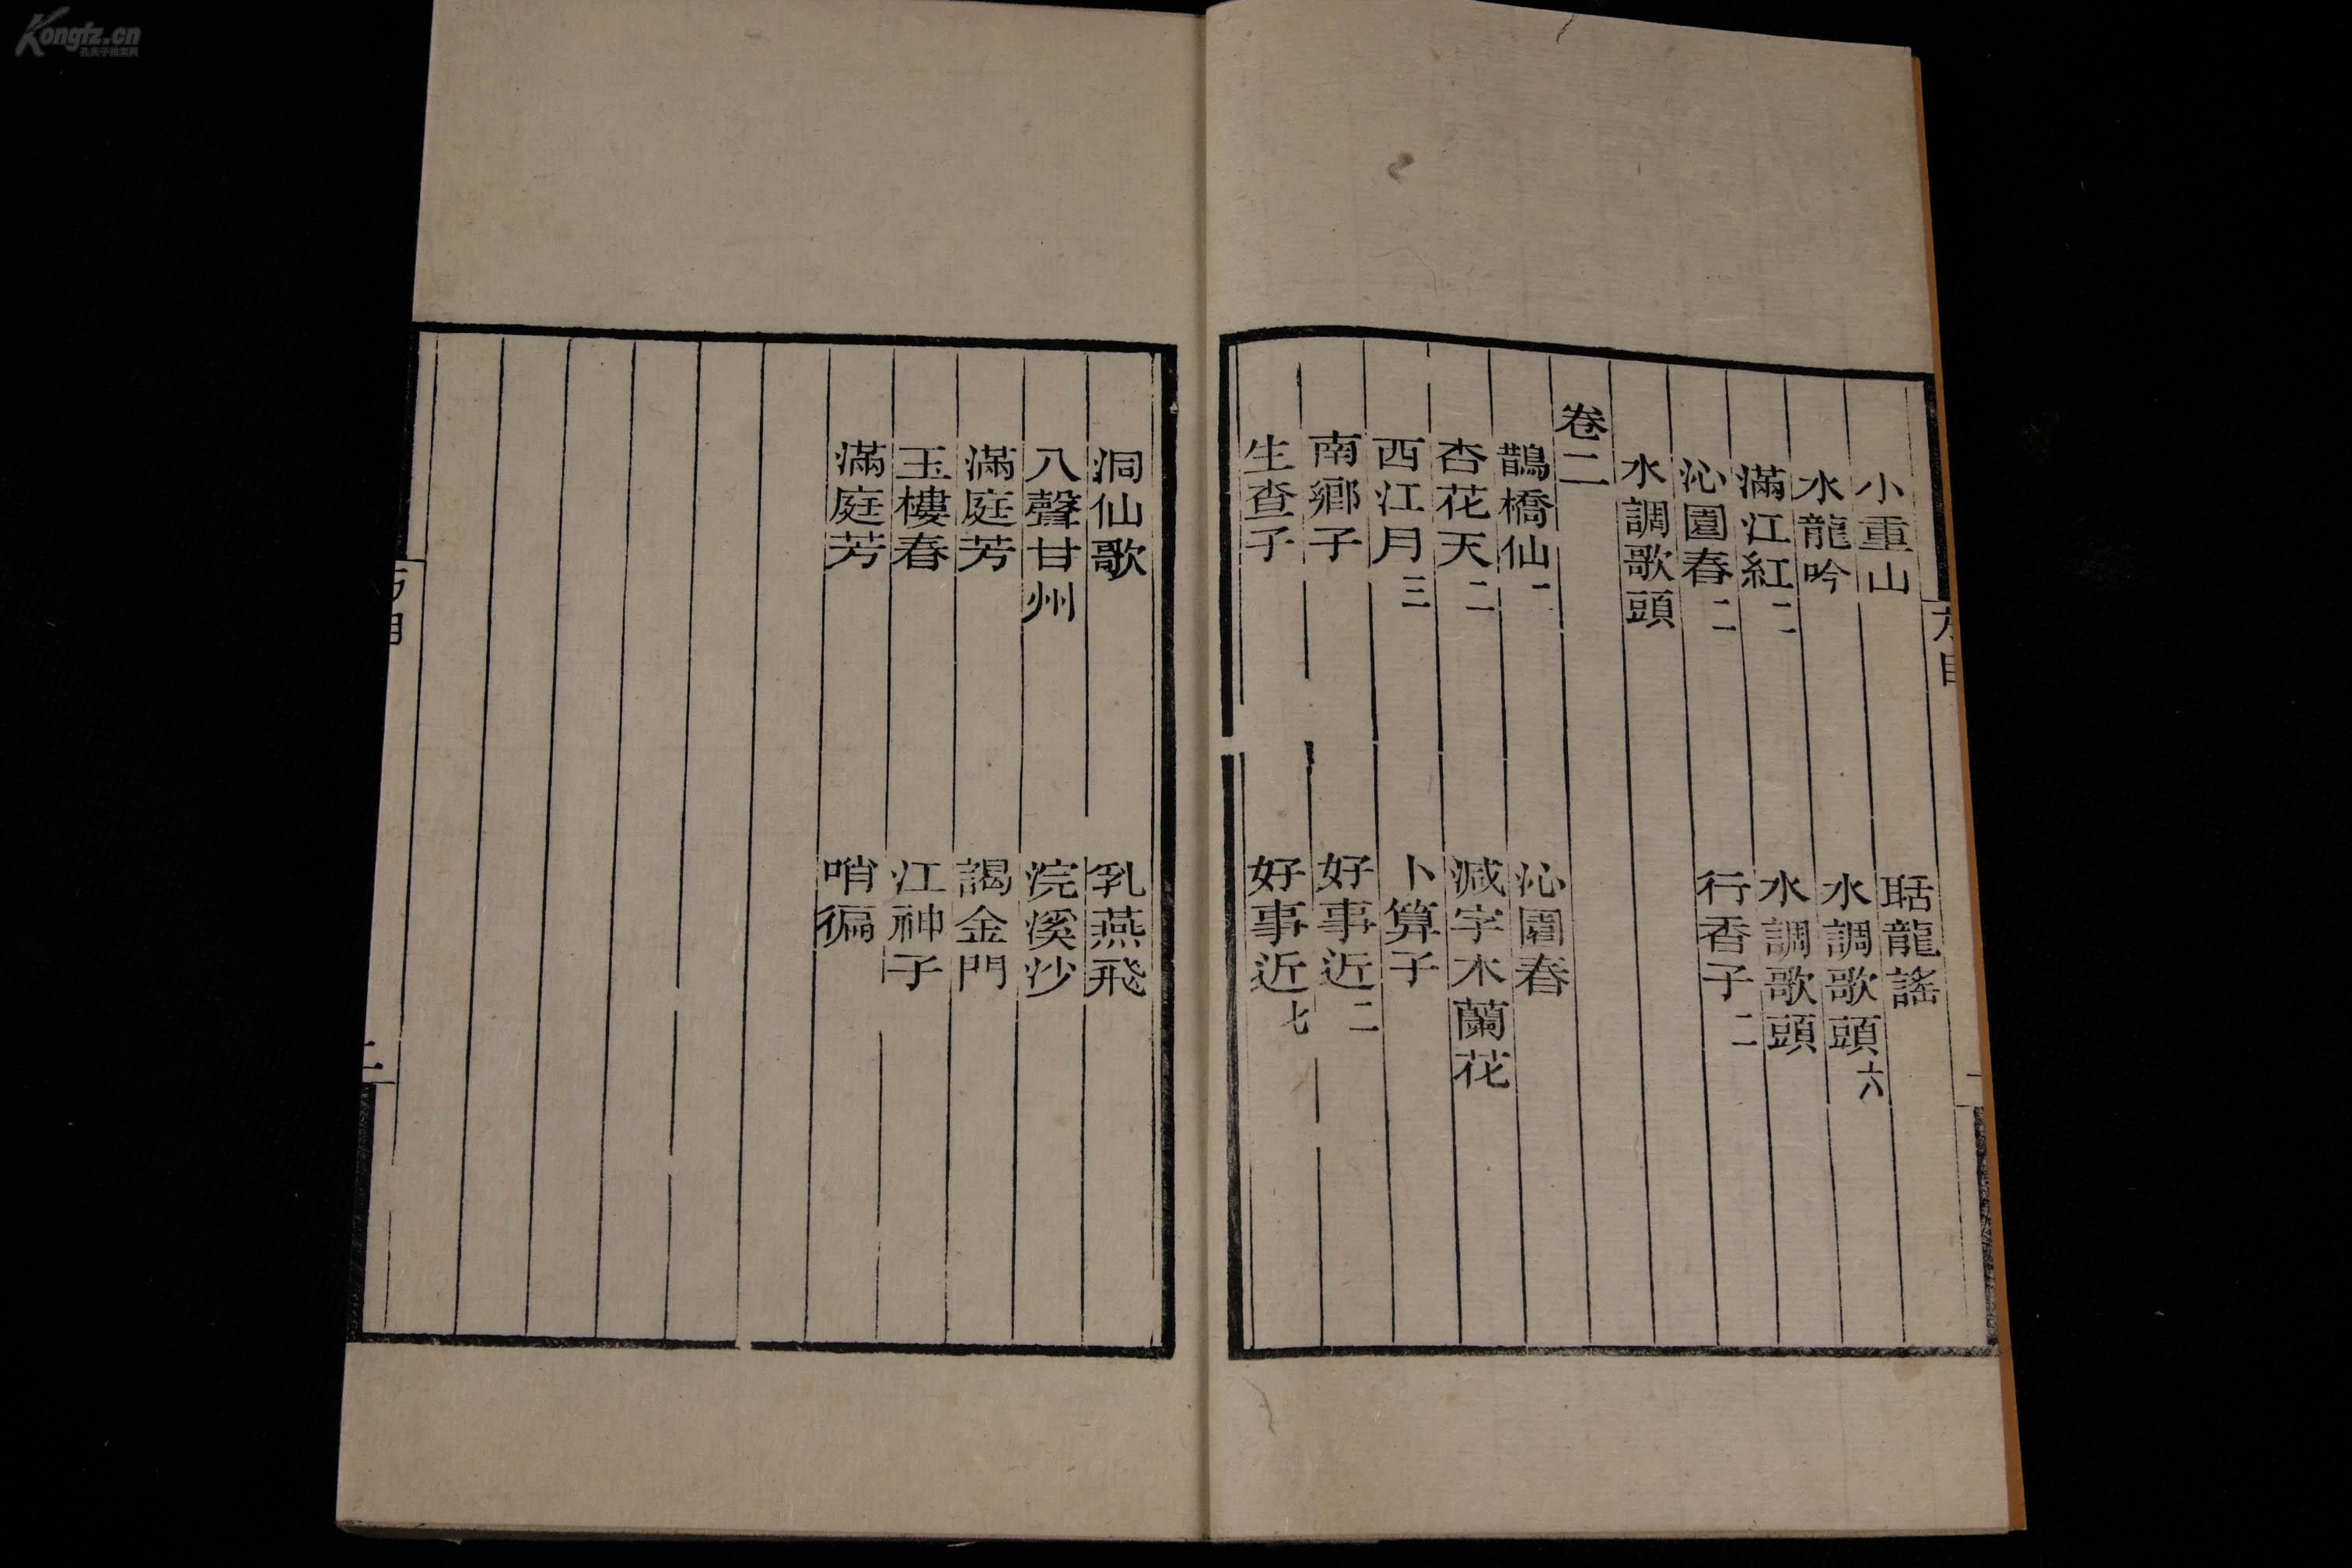 Kongfz.cn
孔夫子拍卖网
小重山 聒龍謠
水龍吟 水調歌頭六
滿江紅二 水調歌頭
沁園春二 行香子二
水調歌頭
卷二
鵲橋仙一 沁園春
杏花天二 減字木蘭花
西江月三 卜算子
南鄉子 好事近二
生查子 好事近七
洞仙歌 乳燕飛
八聲甘州 浣溪沙
滿庭芳 謁金門
玉樓春 江神子
滿庭芳 哨徧